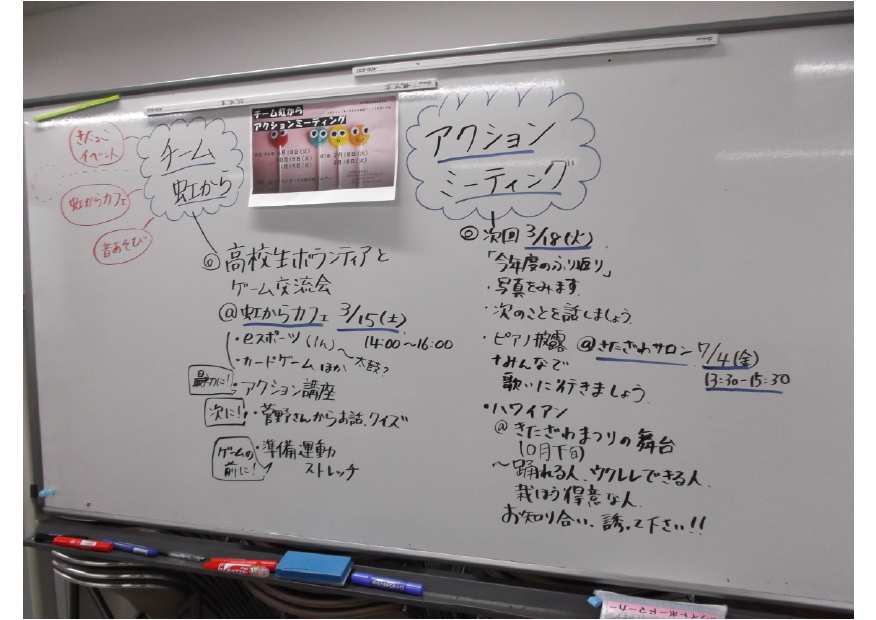 きたっこ
イベント
虹からカフェ
音あそび
チーム
虹から
チーム虹から
アクションミーティング
アクション
ミーティング
◎高校生ボランティアと
ゲーム交流会
@虹からカフェ 3/15(土)
・eスポーツ 14:00〜16:00
・カードゲーム ほか 太鼓?
最初に!
・アクション講座
次に!
・菅野さんからお話、クイズ
ゲームの
前に!
・準備運動
ストレッチ
◎次回 3/18(火)
「今年度のふり返り」
・写真をみます
・次のことを話しましょう
・ピアノ披露 @きたざわサロン 7/4(金)
+みんなで 13:30-15:30
歌いに行きましょう
・ハワイアン
@きたざわまつりの舞台
10月下旬
〜踊れる人、ウクレレできる人、
裁ほう得意な人、
お知り合い、誘って下さい!!